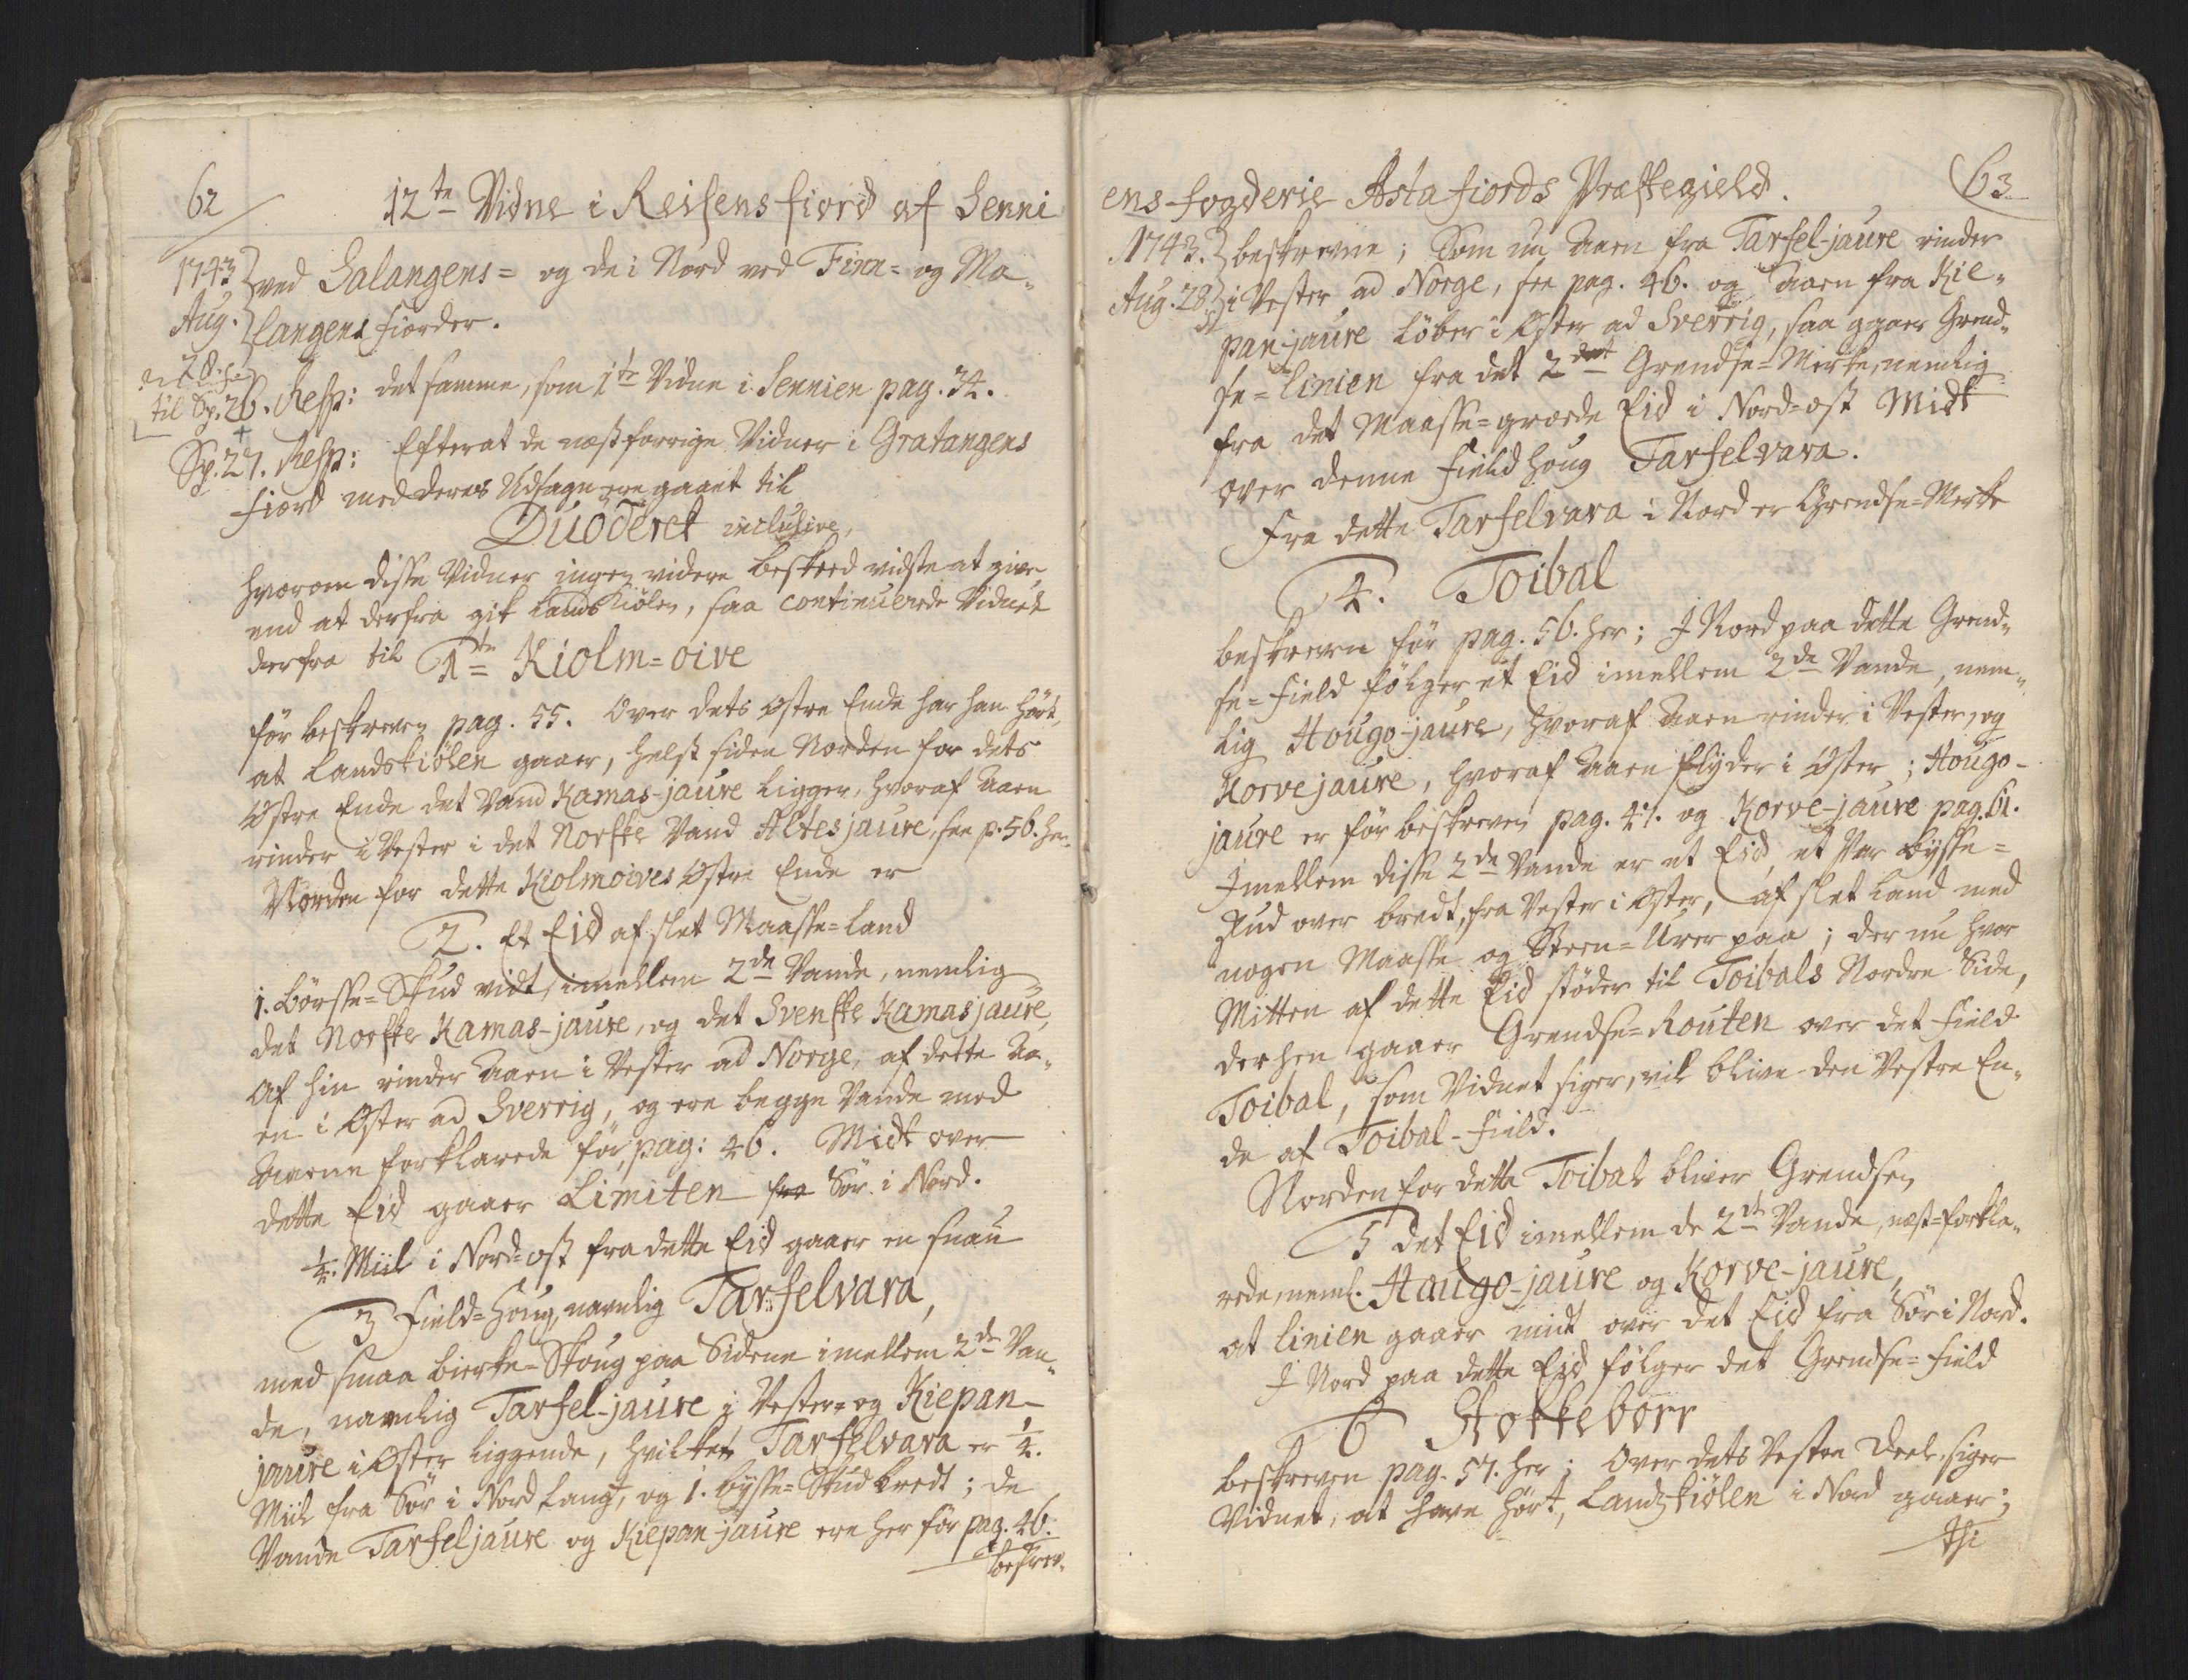 62
12te Vidne i Reisens fiord af Senni
1743
Aug.
28.
ved Salangens= og de i Nord ved Finn= og Ma-
langens fiorder.
til Sp. 26. Resp: det samme, som 1te Vidne i Sennien pag. 34.
Sp. 27. Resp: Efterat de næstforrige Vidner i Gratangens
fiord med deres Udsagn ere gaaet til
Duoderet inclusive,
hvorom disse Vidner ingen videre beskeed vidste at give,
end at derfra gik Lands Kiölen, saa continuerede Vidnet
derfra til 1te Kiolm=oive
för beskreven pag. 55. Over dets Östre Ende har han hört,
at Landskiölen gaaer, helst siden Norden for dets
Östre Ende det Vand Kamas-jaure ligger, hvoraf Aaen
rinder i Vester i det Norske Vand Altesjaure, see p. 56. her.
Norden for dette Kiolmoives Östre Ende er
2. Et Eid af slet Maasse=land
1. Börsse=Skud vidt, imellem 2de Vande, nemlig
det Norske Kamas-jaure, og det Svenske Kamasjaure,
Af hin rinder Aaen i Vester ad Norge, af dette Aa-
en i Öster ad Sverrig, og ere begge Vande med
Aaerne forklarede för, pag: 46. Midt over
dette Eid gaaer Limiten fra Sör i Nord.
1/4. Miil i Nord=ost fra dette Eid gaaer en snau
3 Field=houg, navnlig Tarfelvara,
med smaa bierke=Skoug paa Siderne imellem 2de Van-
de, navnlig Tarfel-jaure i Vester= og Kiepan-
jaure i Öster liggende, hvilket Tarfelvara er 1/4.
Miil fra Sör i Nord langt, og 1. bysse=Skud bredt; de
Vande Tarfeljaure og Kiepan-jaure ere her för pag. 46.
beskrev-
63
ens fogderie Astafiords Præstegield.
1743.
Aug. 28
beskrevne; Som nu Aaen fra Tarfel-jaure rinder
i Vester ad Norge, see pag. 46. og Aaen fra Kie-
pan-jaure löber i Öster ad Sverrig, saa gaaer Grend-
se=linien fra det 2det Grendse=Merke, nemlig
fra det Maasse=groede Eid i Nord=ost Midt
over denne field houg Tarfelvara.
Fra dette Tarfelvara i Nord er Grendse=Merke
4. Toibal
beskreven för pag. 56. her; I Nord paa dette Grend-
se=field fölger et Eid imellem 2de Vande, nem-
lig Hougo-jaure, hvoraf Aaen rinder i Vester, og
Korvejaure, hvoraf Aaen flyder i Öster; Hougo-
jaure er för beskreven pag. 47. og Korve-jaure pag. 61.
Imellem disse 2de Vande er et Eid et Par bysse=
skud over bredt, fra Vester i Öster, af slet land med
nogen Maasse og Steen=Urer paa; der nu hvor
Mitten af dette Eid stöder til Toibals Nordre Side,
derhen gaaer Grendse=Routen over det field
Toibal, som Vidnet siger, vil blive den Vestre En-
de af Toibal-field.
Norden for dette Toibal bliver Grendsen
5 det Eid imellem de 2de Vande, næst=forkla-
rede, neml. Haugo-jaure og Korve-jaure,
at linien gaaer midt over det Eid fra Sör i Nord.
I Nord paa dette Eid fölger det Grendse=field
6 Stokkeborr
beskreven pag. 57. her; Over dets Vestre Deel, siger
Vidnet, at have hört, Landskiölen i Nord gaaer;
thi